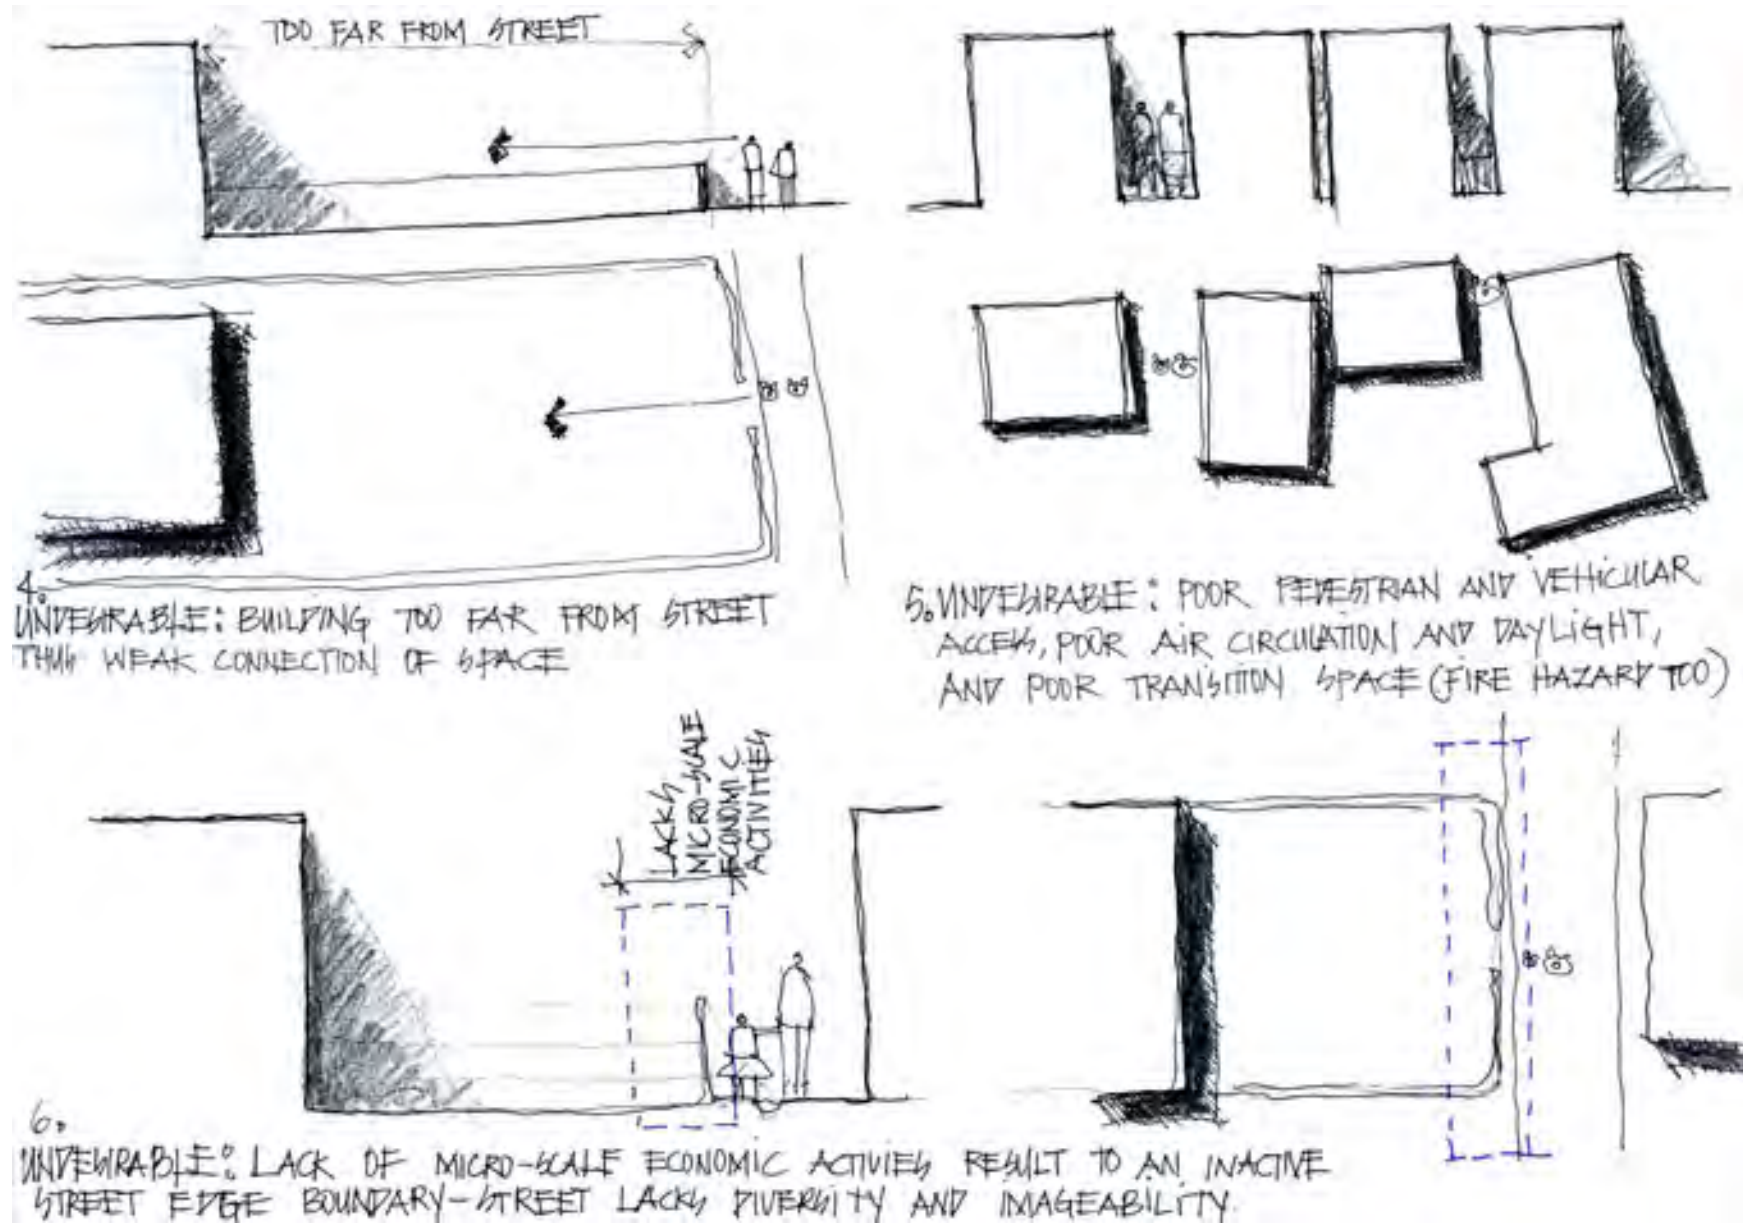 TOO FAR FROM STREET
4.
UNDESIRABLE: BUILDING TOO FAR FROM STREET
THUS WEAK CONNECTION OF SPACE
5. UNDESIRABLE: POOR PEDESTRIAN AND VEHICULAR
ACCESS, POOR AIR CIRCULATION AND DAYLIGHT,
AND POOR TRANSITION SPACE (FIRE HAZARD TOO)
LACKS
MICRO-SCALE
ECONOMIC
ACTIVITIES
6.
UNDESIRABLE: LACK OF MICRO-SCALE ECONOMIC ACTIVIES RESULT TO AN INACTIVE
STREET EDGE BOUNDARY-STREET LACKS DIVERSITY AND IMAGEABILITY.